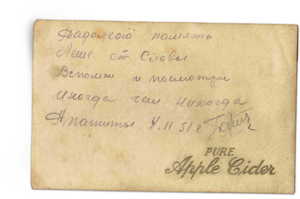 На долгую память
Леше от Славы
Вспомни и посмотри
иногда чем никогда
Апатиты. 4.11.51 г.
PURE
Apple Cider